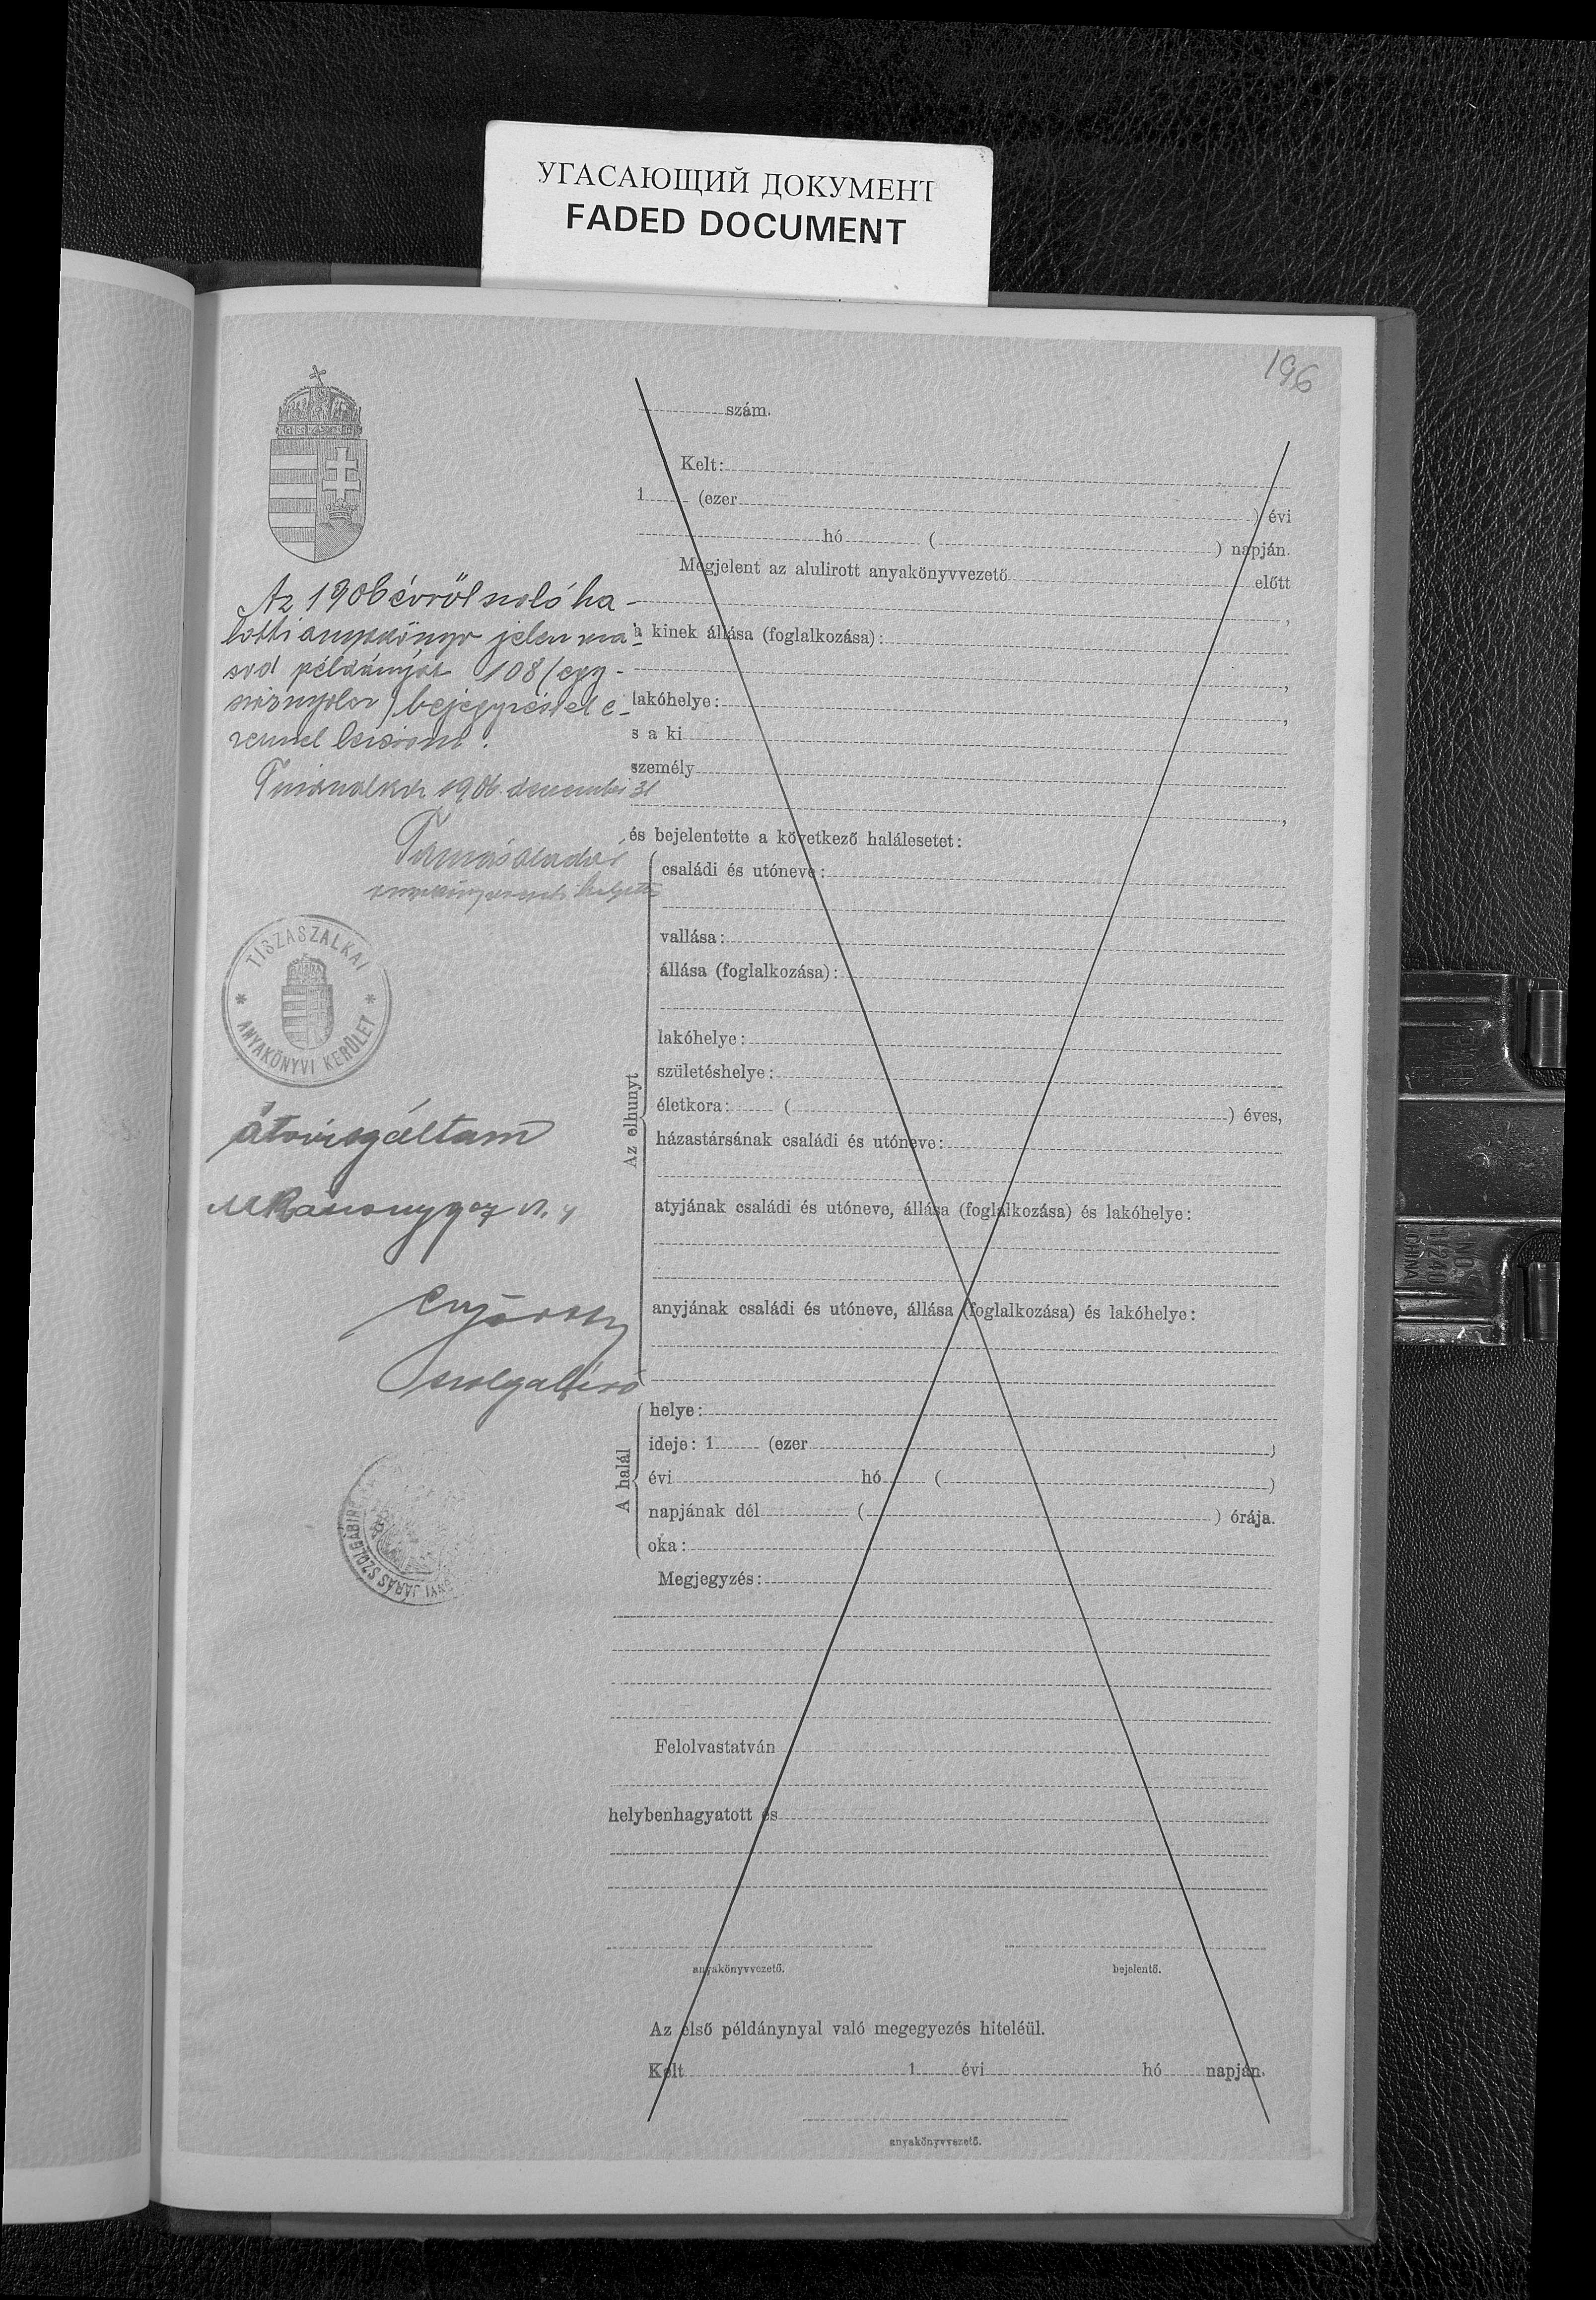 УГАСАЮЩИЙ ДОКУМЕНТ
FADED DOCUMENT
196
Az 1906 évről szóló ha-
lotti anyakönyv jelen má-
sod példányát 108 (egy-
száznyolcz) bejegyzéssel e-
zennel lezárom.
Tiszaszalka 1906. december 31
Tamás Aladár
anyakönyvvezető helyettes
TISZASZALKAI
ANYAKÖNYVI KERÜLET
átvizsgáltam
szolgabíró
JÁRÁS SZOLGABIR
szám.
Kelt:
1 (ezer ) évi
hó ( ) napján.
Megjelent az alulirott anyakönyvvezető előtt
,
a kinek állása (foglalkozása):
,
lakóhelye: ,
s a ki
személy
,
és bejelentette a következő halálesetet:
Az elhunyt
családi és utóneve:
vallása:
állása (foglalkozása):
lakóhelye:
születéshelye:
életkora: ( ) éves,
házastársának családi és utóneve:
atyjának családi és utóneve, állása (foglalkozása) és lakóhelye:
anyjának családi és utóneve, állása (foglalkozása) és lakóhelye:
A halál
helye:
ideje: 1 (ezer )
évi hó ( )
napjának dél ( ) órája.
oka:
Megjegyzés:
Felolvastatván
helybenhagyatott és
anyakönyvvezető. bejelentő.
Az első példánynyal való megegyezés hiteléül.
Kelt 1 évi hó napján.
anyakönyvvezető.
NO
11240
CHINA